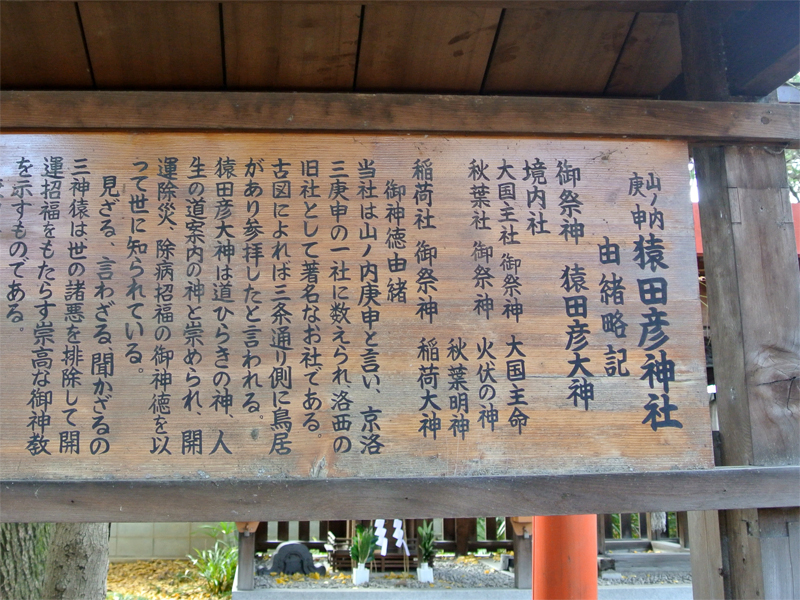 山ノ内
庚申
猿田彦神社
由緒略記
御祭神 猿田彦大神
境内社
大国主社 御祭神 大国主命
秋葉社 御祭神 火伏の神
秋葉明神
稲荷社 御祭神 稲荷大神
御神徳由緒
当社は山ノ内庚申と言い、京洛
三庚申の一社に数えられ、洛西の
旧社として著名なお社である。
古図によれば三条通り側に鳥居
があり参拝したと言われる。
猿田彦大神は道ひらきの神、人
生の道案内の神と崇められ、開
運除災、除病招福の御神徳を以
って世に知られている。
見ざる、言わざる、聞かざるの
三神猿は世の諸悪を排除して開
運招福をもたらす崇高な御神教
を示すものである。